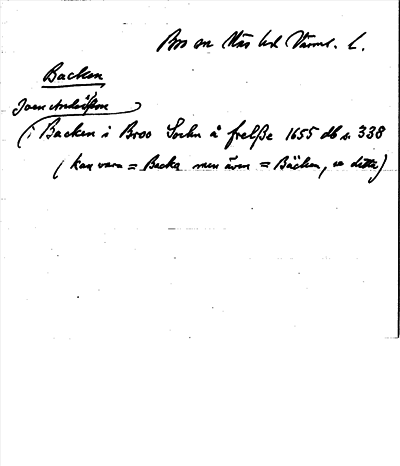 Bro sn Näs hd Värml. l.
Backen
Joen Andersson
(i Backen i Broo Sochn å frelsse 1655 db s. 338
(kan vara = Backa men även = Bäcken, se detta)